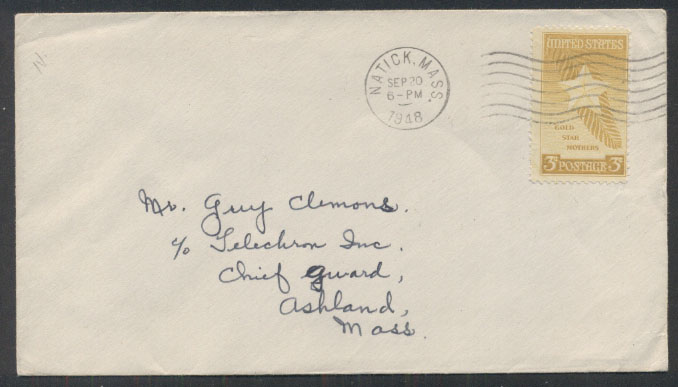 N.
NATICK, MASS.
SEP 20
6-PM
1948
UNITED STATES
GOLD
STAR
MOTHERS
3¢ POSTAGE 3¢
Mr. Guy Clemons.
c/o Telechron Inc.
Chief guard,
Ashland,
Mass.